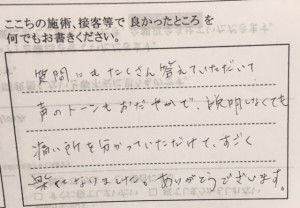 ここちの施術、接客等で 良かったところ を
何でもお書きください。
質問にもたくさん答えていただいて
声のトーンもおだやかで、説明しなくても
痛い所を分かっていただけて、すごく
楽になりました。ありがとうございます。